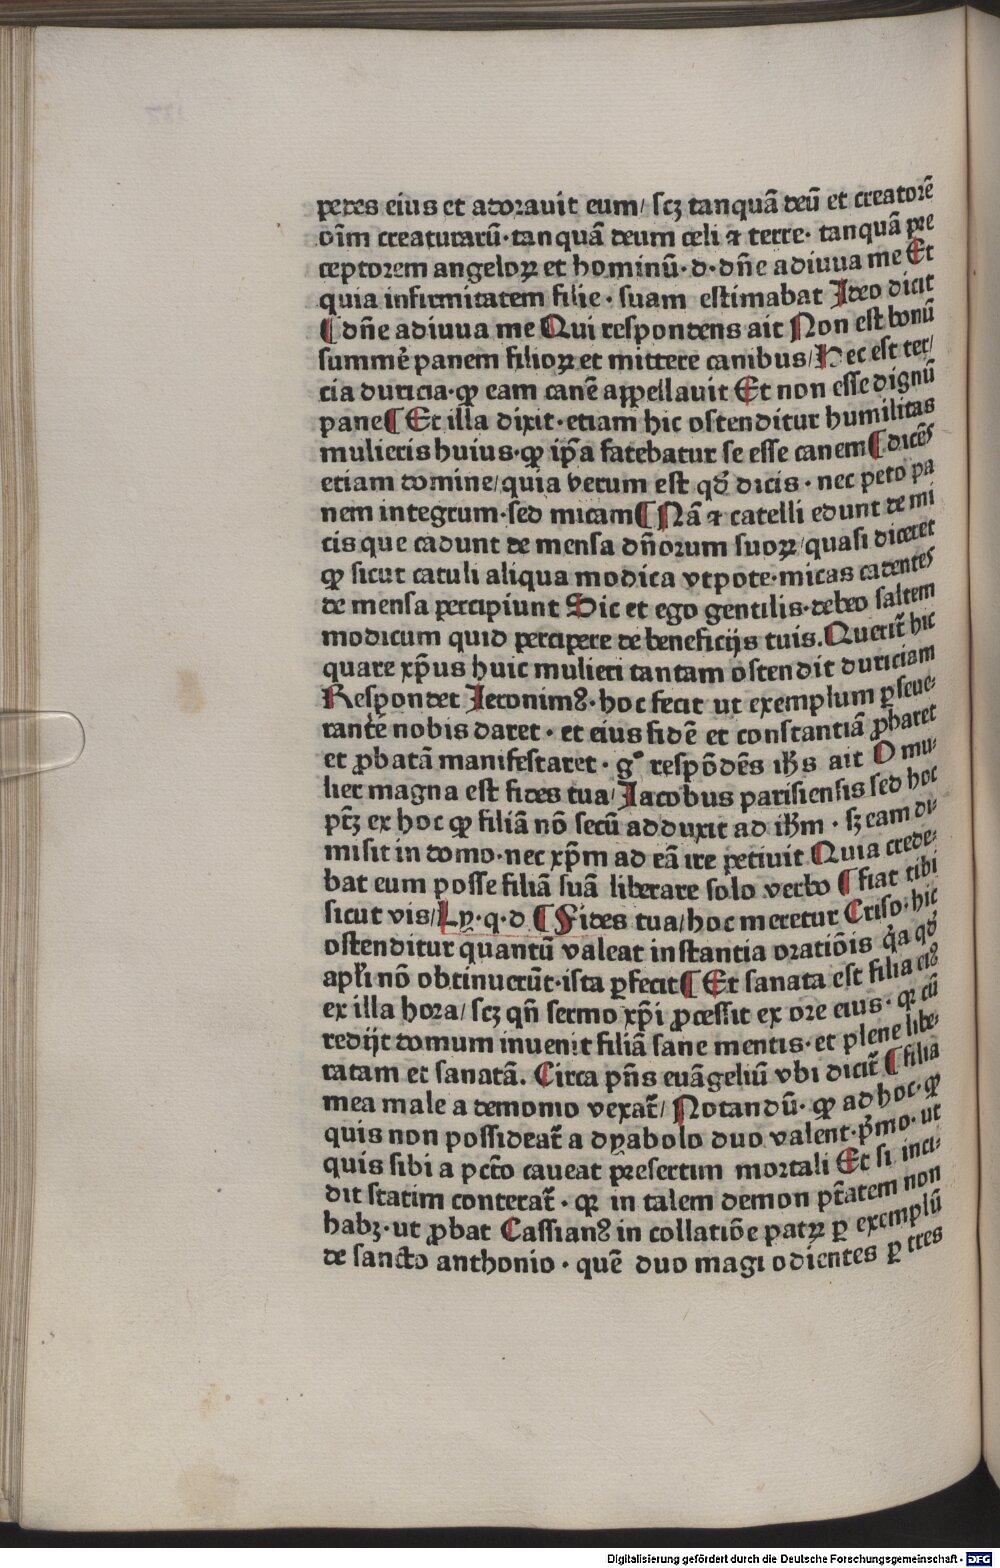 pedes eius et adorauit eum/ scꝫ tanquā deū et creatorē
oīm creaturarū·tanquā deum celi ⁊ terre· tanquā pre
ceptorem angeloꝝ et hominū·d·dn̄e adiuua me Et
quia infirmitatem filie·suam estimabat Ideo dicit
¶dn̄e adiuua me Qui respondens ait Non est bonū
summe᷑ panem filioꝝ et mittere canibus/Hec est ter/
cia duricia·ꝙ eam canē appellauit Et non esse dignū
pane¶Et illa dixit·etiam hic ostenditur humilitas
mulieris huius·ꝙ ip̄a fatebatur se esse canem¶dicēs
etiam domine/quia verum est qd̄ dicis·nec peto pa
nem integrum·sed micam¶Nā ⁊ catelli edunt de mi
cis que cadunt de mensa dn̄orum suoꝝ/quasi diceret
ꝙ sicut catuli aliqua modica vtpote·micas cadentes
de mensa percipiunt Sic et ego gentilis·debeo saltem
modicum quid percipere de beneficijs tuis.Querit᷑ hic
quare xp̄us huic mulieri tantam ostendit duriciam
Respondet Jeronimꝰ·hoc fecit ut exemplum ꝑseue:
rantie᷑ nobis daret·et eius fidē et constantiā ꝓbaret
et ꝓbatā manifestaret·gͦ respōdēs ih̄s ait O mu:
lier magna est fides tua/Jacobus parisiensis sed hoc
ptꝫ ex hoc ꝙ filiā nō secū adduxit ad ih̄m·sꝫ eam di:
misit in domo·nec xp̄m ad eā ire petiuit Quia crede:
bat eum posse filiā suā liberare solo verbo ¶fiat tibi
sicut vis/Ly·q·d ¶Fides tua/hoc meretur Criso·hic
ostenditur quantū valeat instantia oratiōis q̇a qd̄
apl̓i nō obtinuerūt·ista ꝑfecit¶Et sanata est filia eiꝰ
ex illa hora/ scꝫ qn̄ sermo xp̄i ꝓcessit ex ore eius·qꝛ cū
redijt domum inuenit filiā sane mentis·et plene libe:
ratam et sanatā. Circa pn̄s euāgeliū vbi dicit᷑ ¶filia
mea male a demonio vexat᷑/ Notandū·ꝙ ad hoc·ꝙ
quis non possideat᷑ a dyabolo duo valent·p̄mo·ut
quis sibi a pccō caueat presertim mortali Et si inci:
dit statim conterat᷑·qꝛ in talem demon ptātem non
habꝫ·ut ꝓbat Cassianꝰ in collatiōe patꝝ ꝑ exemplū
de sancto anthonio·quē duo magi odientes ꝑ tres
Digitalisierung gefördert durch die Deutsche Forschungsgemeinschaft - DFG